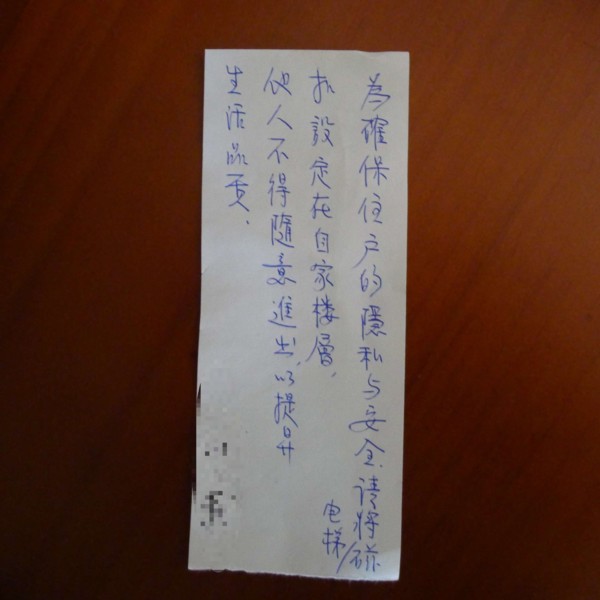 為確保住户的隱私与安全.请將电梯磁
扣設定在自家楼層,
他人不得隨意進出,以提升
生活品质.